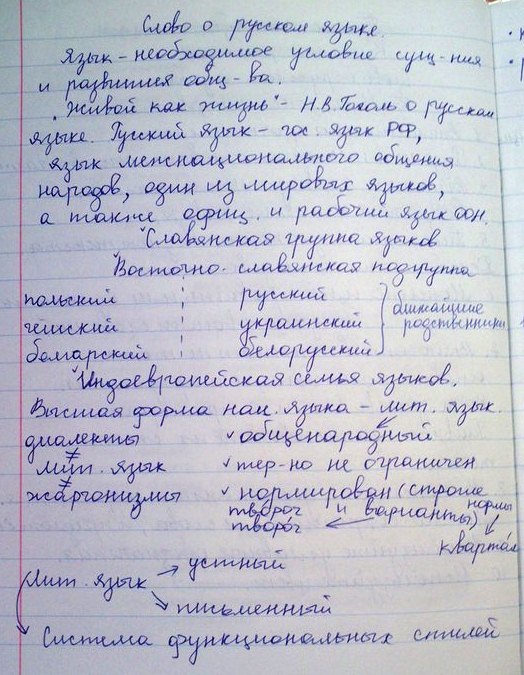 Слово о русском языке.
Язык - необходимое условие сущ-ния
и развития общ-ва.
"Живой как жизнь" - Н.В. Гоголь о русском
языке. Русский язык - гос. язык РФ,
язык межнационального общения
народов, один из мировых языков,
а также офиц. и рабочий язык ООН.
Славянская группа языков
Восточно-славянская подгруппа
польский русский
чешский украинский
болгарский белорусский
ближайшие
родственники
Индоевропейская семья языков.
Высшая форма нац. языка - лит. язык.
диалекты общенародный
≠
лит. язык тер-но не ограничен
≠
жаргонизмы нормирован (строгие нормы
и варианты)
творог
творо́г
кварта́л
Лит. язык → устный
→ письменный
Система функциональных стилей